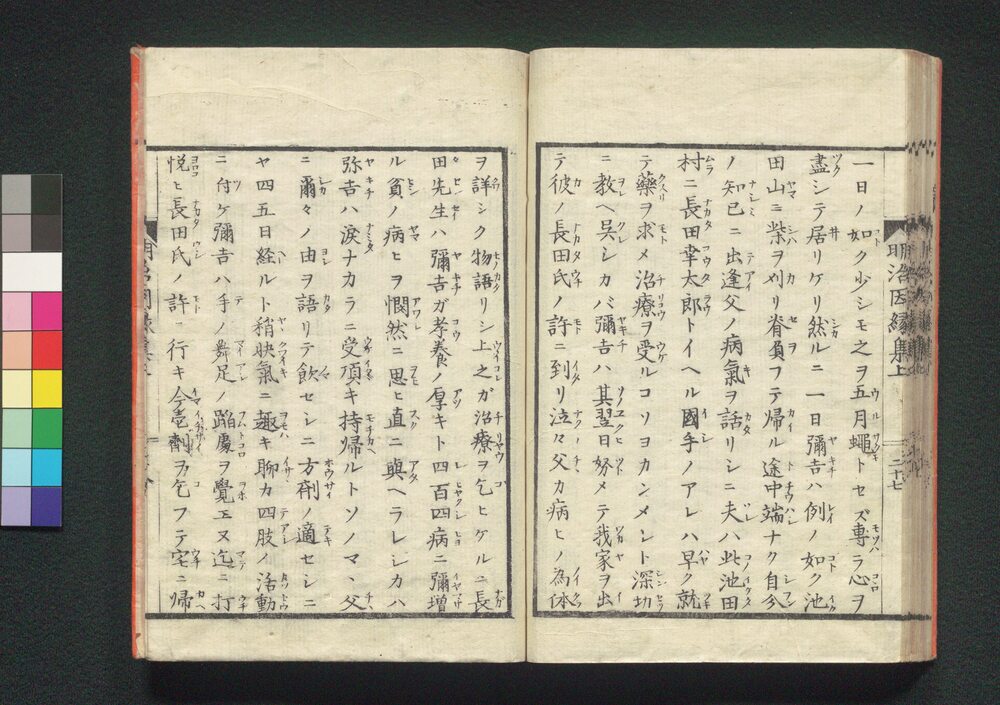 一日ノ如ク少シモ之ヲ五月蠅トセズ專ラ心ヲ
盡シテ居リケリ然ルニ一日彌吉ハ例ノ如ク池
田山ニ柴ヲ刈リ脊負フテ帰ル途中端ナク自分
ノ知已ニ出逢父ノ病氣ヲ話リシニ夫ハ此池田
村ニ長田幸太郎トイヘル國手ノアレハ早ク就
テ藥ヲ求メ治療ヲ受ルコソヨカンメント深切
ニ教ヘ呉シカバ彌吉ハ其翌日努メテ我家ヲ出
テ彼ノ長田氏ノ許ニ到リ泣々父カ病ヒノ為体
ヲ詳シク物語リシ上之ガ治療ヲ乞ヒケルニ長
田先生ハ彌吉ガ孝養ノ厚キト四百四病ニ彌増
ル貧ノ病ヒヲ憫然ニ思ヒ直ニ與ヘラレシカハ
弥吉ハ涙ナカラニ受項キ持帰ルトソノマヽ父
ニ爾々ノ由ヲ語リテ飲セシニ方剤ノ適セシニ
ヤ四五日経ルト稍快氣ニ趣キ聊カ四肢ノ活動
ニ付ケ彌吉ハ手ノ舞足ノ蹈處ヲ覺エヌ迄ニ打
悦ヒ長田氏ノ許ニ行キ今壱劑ヲ乞フテ宅ニ帰
明治因縁集上
二十七